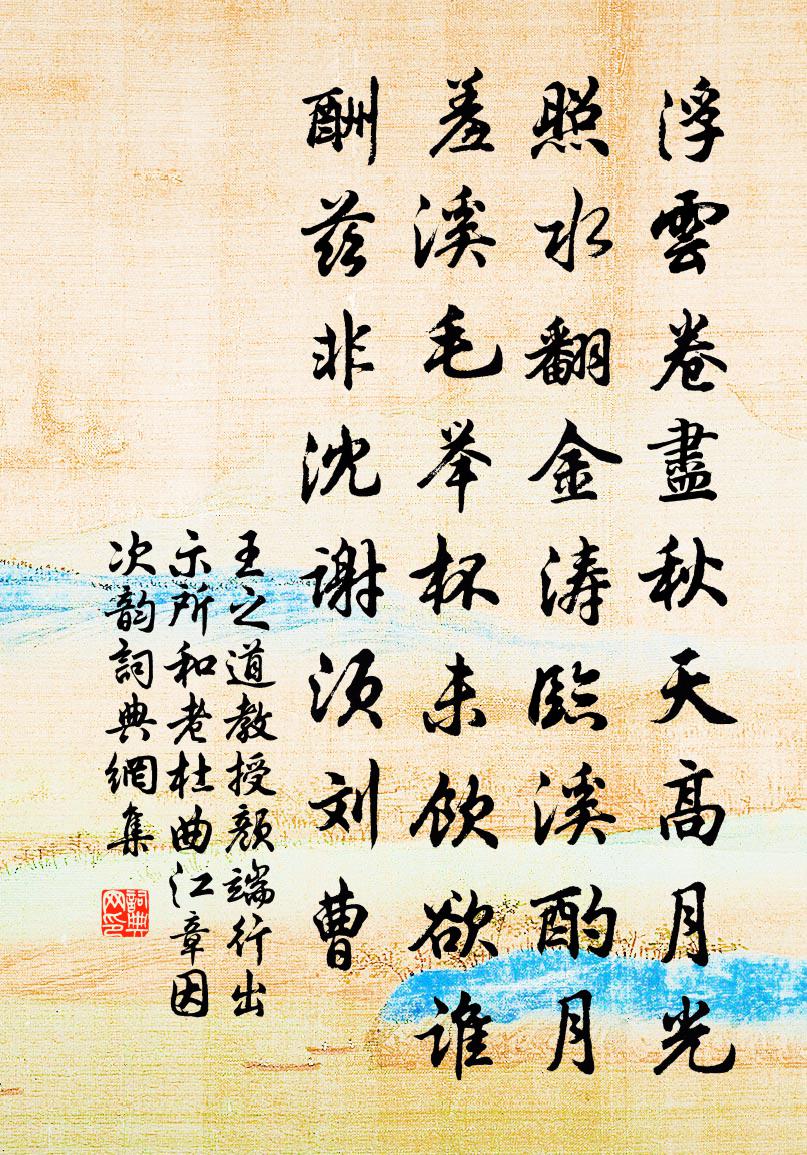 浮雲卷盡秋天高月光
照水翻金涛臨溪酌月
羞溪毛举杯未饮欲谁
酬兹非沈谢须刘曹
王之道教授颜端行出
示所和老杜曲江章因
次韵詞典網集
詞典網印